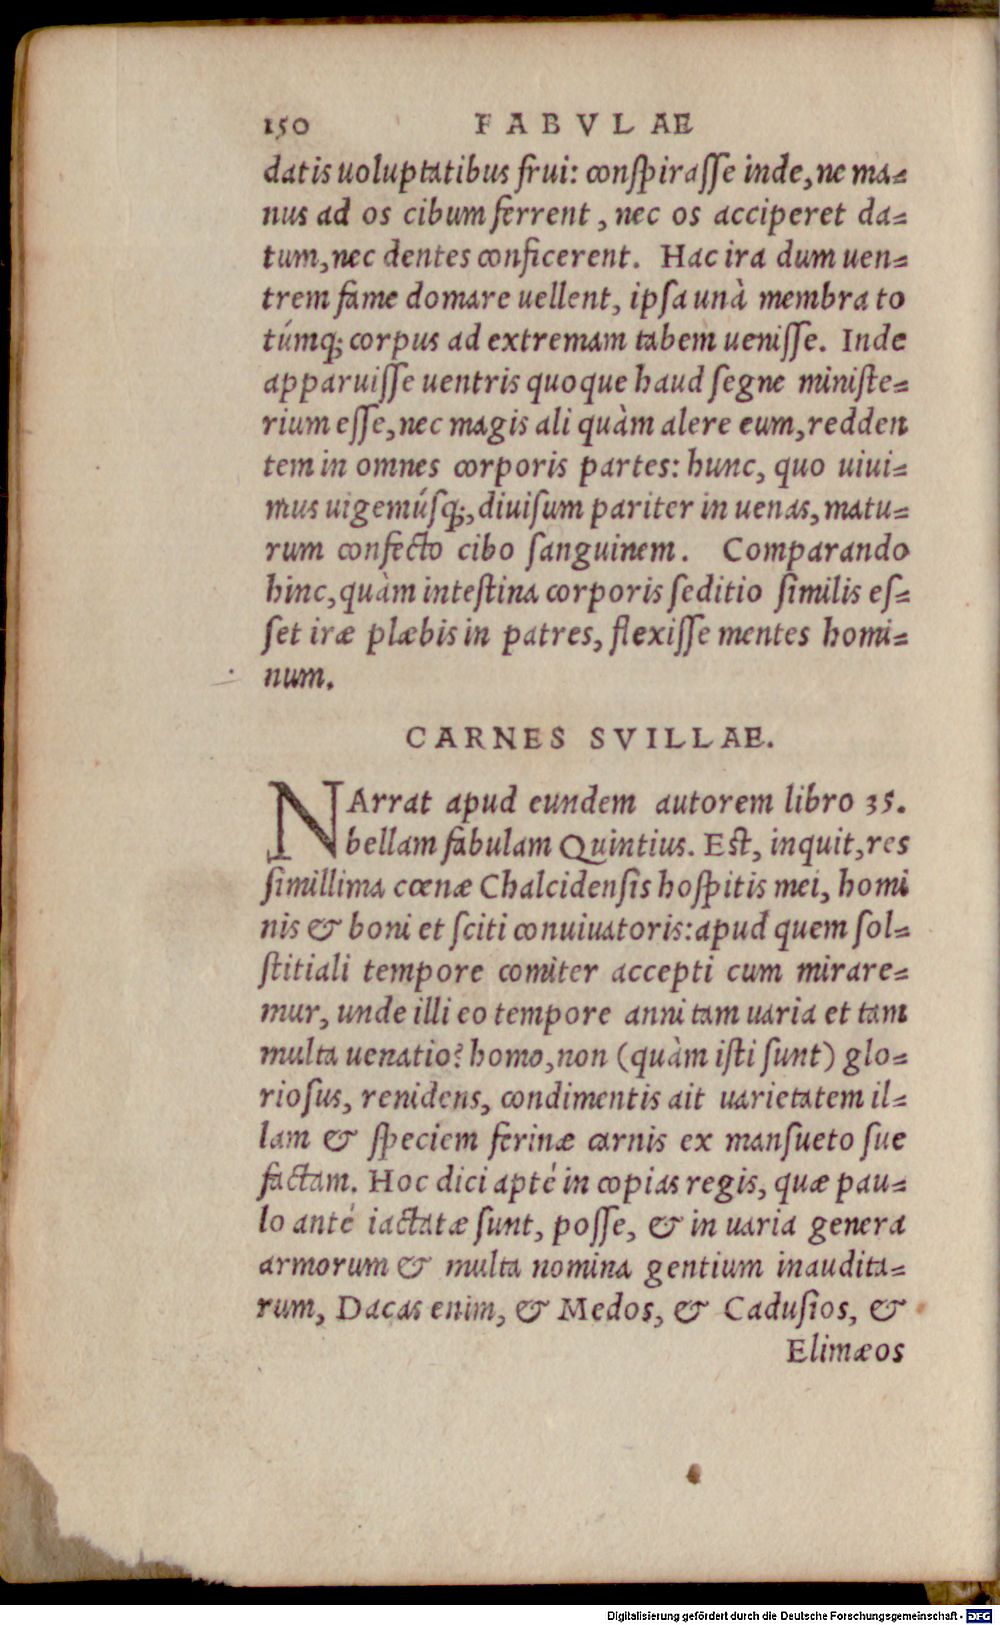 150 FABVLAE
datis uoluptatibus frui: conspirasse inde, ne ma=
nus ad os cibum ferrent, nec os acciperet da=
tum, nec dentes conficerent. Hac ira dum uen=
trem fame domare uellent, ipsa unà membra to
túmq; corpus ad extremam tabem uenisse. Inde
apparuisse uentris quoque haud segne ministe=
rium esse, nec magis ali quàm alere eum, redden
tem in omnes corporis partes: hunc, quo uiui=
mus uigemúsq;, diuisum pariter in uenas, matu=
rum confecto cibo sanguinem. Comparando
hinc, quàm intestina corporis seditio similis es=
set iræ plæbis in patres, flexisse mentes homi=
num.
CARNES SVILLAE.
NArrat apud eundem autorem libro 35.
bellam fabulam Quintius. Est, inquit, res
simillima cœnæ Chalcidensis hospitis mei, homi
nis & boni et sciti conuiuatoris: apud quem sol=
stitiali tempore comiter accepti cum mirare=
mur, unde illi eo tempore anni tam uaria et tam
multa uenatio? homo, non (quàm isti sunt) glo=
riosus, renidens, condimentis ait uarietatem il=
lam & speciem ferinæ carnis ex mansueto sue
factam. Hoc dici apté in copias regis, quæ pau=
lo anté iactatæ sunt, posse, & in uaria genera
armorum & multa nomina gentium inaudita=
rum, Dacas enim, & Medos, & Cadusios, &
Elimæos
Digitalisierung gefördert durch die Deutsche Forschungsgemeinschaft - DFG